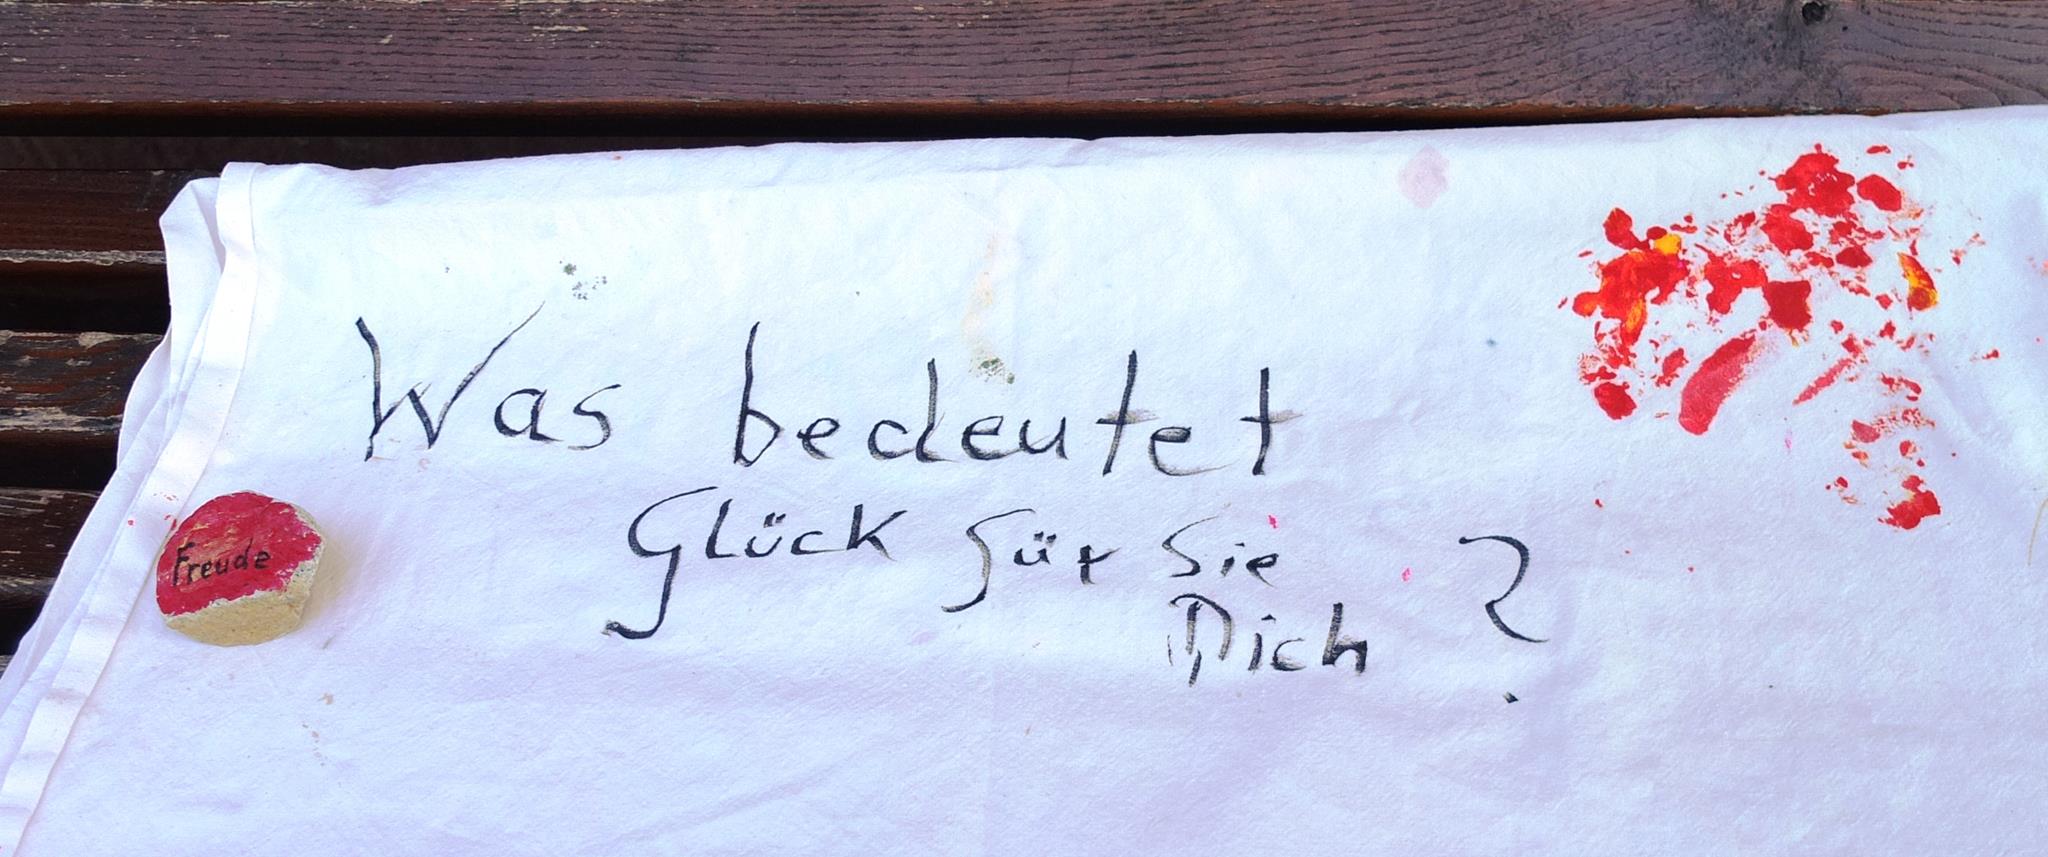 Was bedeutet
Glück für Sie
Dich ?
Freude